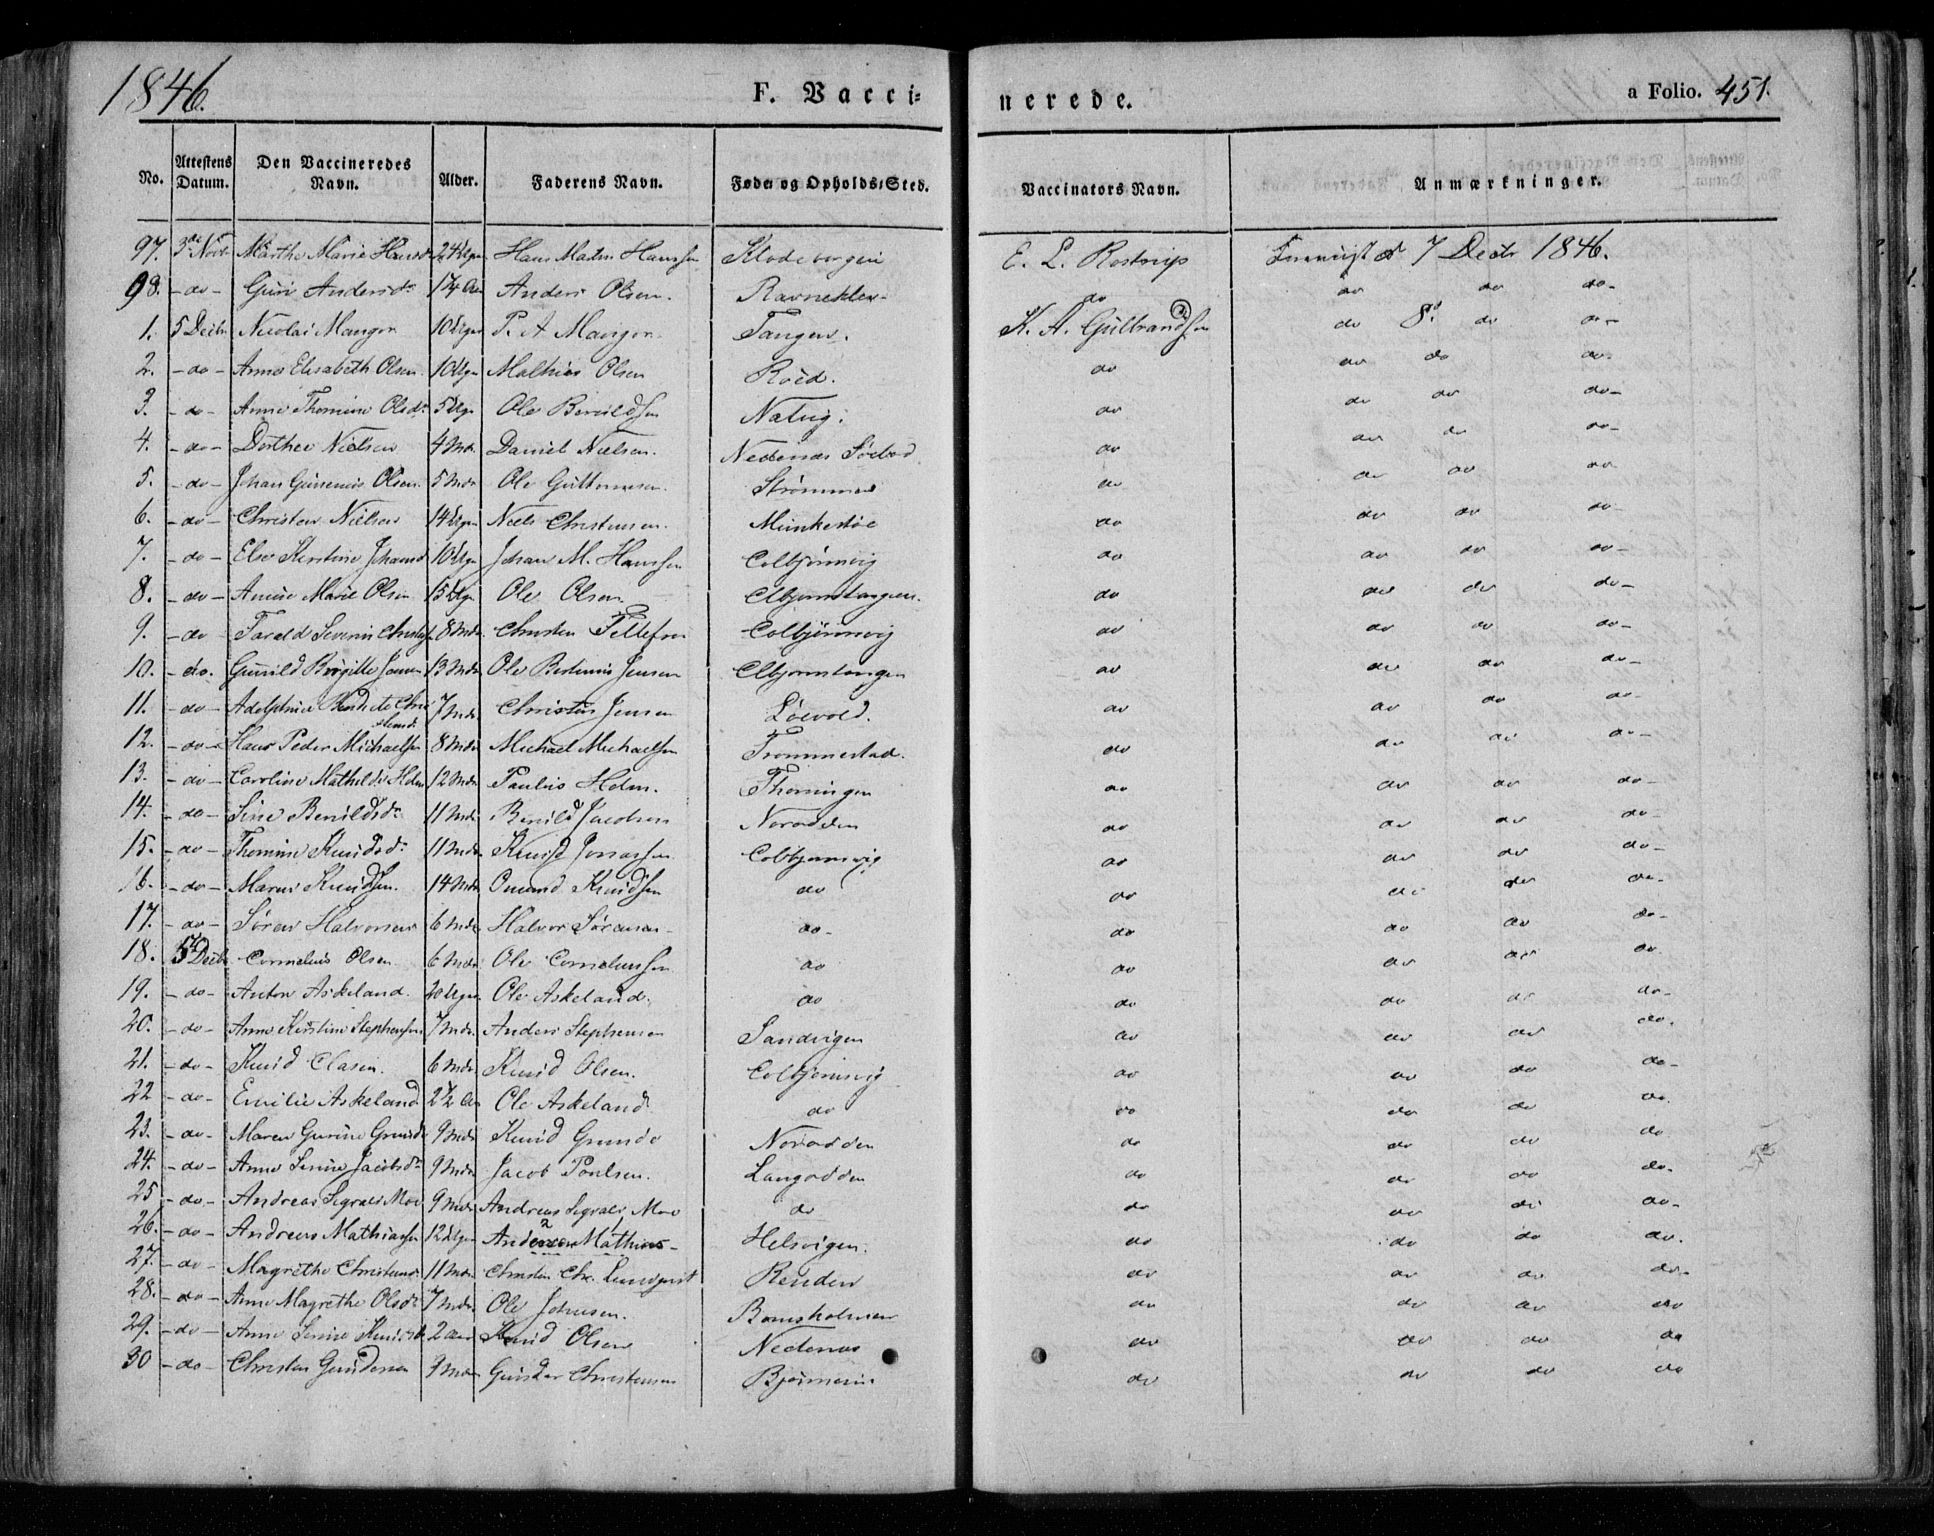 1846.
F. Vacci=
nerede.
a Folio. 451.
No. Attestens Datum. Den Vaccineredes Navn. Alder. Faderens Navn. Føde- og Opholds-Sted. Vaccinators Navn. Anmærkninger.
97. 3de Novb. Marthe Marie Hansd 24 Uger Hans Madm Hanssen Klodeborgen E. L. Rostrup 7 Decbr 1846.
98. - do - Guri Andersdr 1 1/4 Aar Anders Olsen. Ravnekler do do do do -
1. 5 Decbr Nicolai Mangor 10 Uger P. A Mangor Tangen. K. A. Gulbrandsen do 8d do do -
2. - do - Anne Elisabeth Olsen 10 Uger Mathias Olsen Roed. do do do do -
3. - do - Anne Thomine Olsdr 5 Uger Ole Beruldsen Natvig. do do do do -
4. - do - Dorthee Nielsen 4 Mdr Daniel Nielsen. Nedenæs do do do do -
5. - do - Johan Olsen. 5 Mdr Ole Guttormsen. Strømmen do do do do
6. - do - Christen Nielsen 14 Uger Niels Christensen. Munkestøe do do do do -
7. - do - Else Kirstine Johansd 10 Uger Johan M. Hanssen Colbjørnsvig do do do do -
8. - do - Marie Olsen 15 Uger Ole Olsen. Elbjørnstangen. do do do do -
9. - do Tarald Severin 8 Mdr Christen Pellefsen Colbjørnsvig do do do do -
10. - do. Gunild Birgitte Jensen 13 Mdr Ole Jensen Elbjørnstangen do do do do -
11. - do - Adolphine 7 Mdr Christen Jensen Løevold. do do do do -
12. - do - Hans Peder Michaelsen 8 Mdr Michael Michaelsen Trommestad. do do do do -
13. - do - Caroline Mathilde Holm 12 Mdr Paulus Holm. Thoningen do do do do -
14. - do - Sine Beruldsdr 11 Mdr Beruld Jacobsen Norodden do do do do -
15. - do - Thomine Knudsdr 11 Mdr Knud Jonassen Colbjørnsvig do do do do -
16. - do - Maren Knudsen. 14 Mdr Omund Knudsen do do do do do -
17. - do - Søren Halvorsen 6 Mdr Halvor Sørensen - do - do do do do -
18. 5 Decbr Cornelius Olsen 6 Mdr Ole Corneliussen do do do do do.
19. - do - Anton Askeland. 20 Uger Ole Askeland. do do do do do -
20. - do - Anne Kirstine Stephensen 7 Mdr Anders Stephensen Sandvigen do do do do.
21. - do - Knud Clasen. 6 Mdr Knud Olsen. Colbjørnsvig do do do do -
22 - do - Emilie Askeland 2 1/2 Aar Ole Askeland do do do do do.
23. - do - Maren Gurine Grunde 9 Mdr Knud Grunde Norodden do do do do
24. - do - Anne Serine Jacobsdr 9 Mdr Jacob Poulsen. Langodden do do do do -
25 - do - Andreas Moe 9 Mdr Andreas Moe do do do do do -
26. - do - Andreas Mathiassen 12 Uger Mathias - Helsvigen. do do do do.
27. - do - Magrethe Christensd 11 Mdr Christen Chr. Lundqvist Renden do do do do -
28. - do - Anne Magrethe Olsdr 7 Mdr Ole Johnsen. Bomsholmen do do do do
29. - do - Anne Serine Knudsd 2 Aar Knud Olsen Nedenæs do do do do
30 - do - Christen Gundersen 9 Mdr Gunder Christensen do do do do